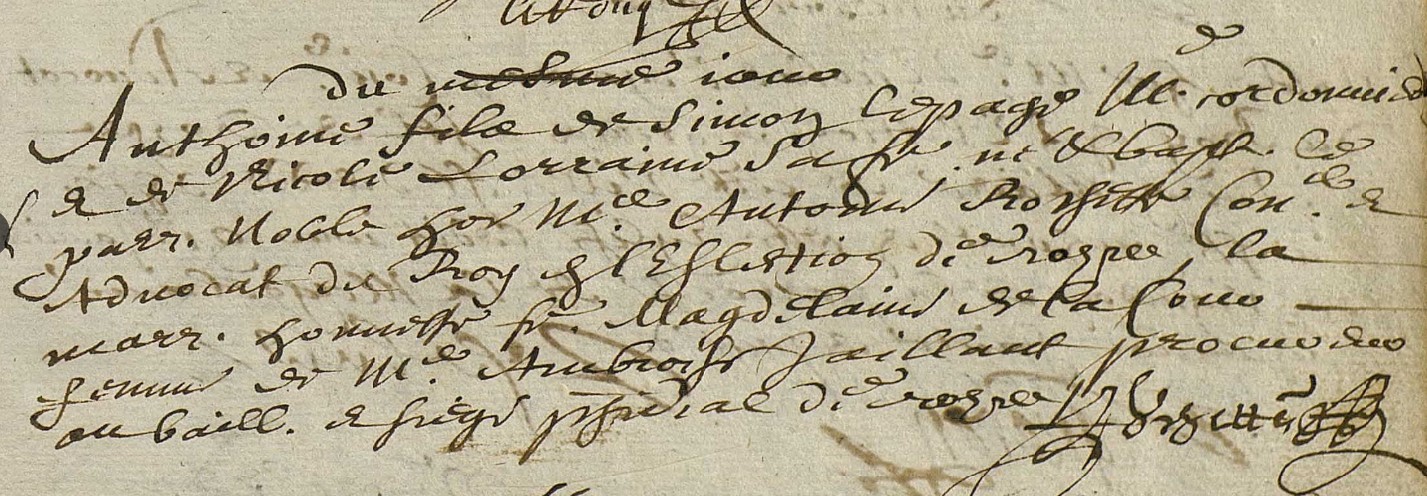 du mesme jour
Anthoine filz de Simon Lepage M.e cordonnier
& de Nicole Lorraine sa fe. ne & bapt. le
parr. Noble hoe M.e Antoine Con.er &
Advocat du Roy en l'Eslection de Troyes, la
marr. honneste fe. Magdelaine de la Cour
femme de M.e Ambroise Jaillant procureur
au baill. & siege psidial de Troyes